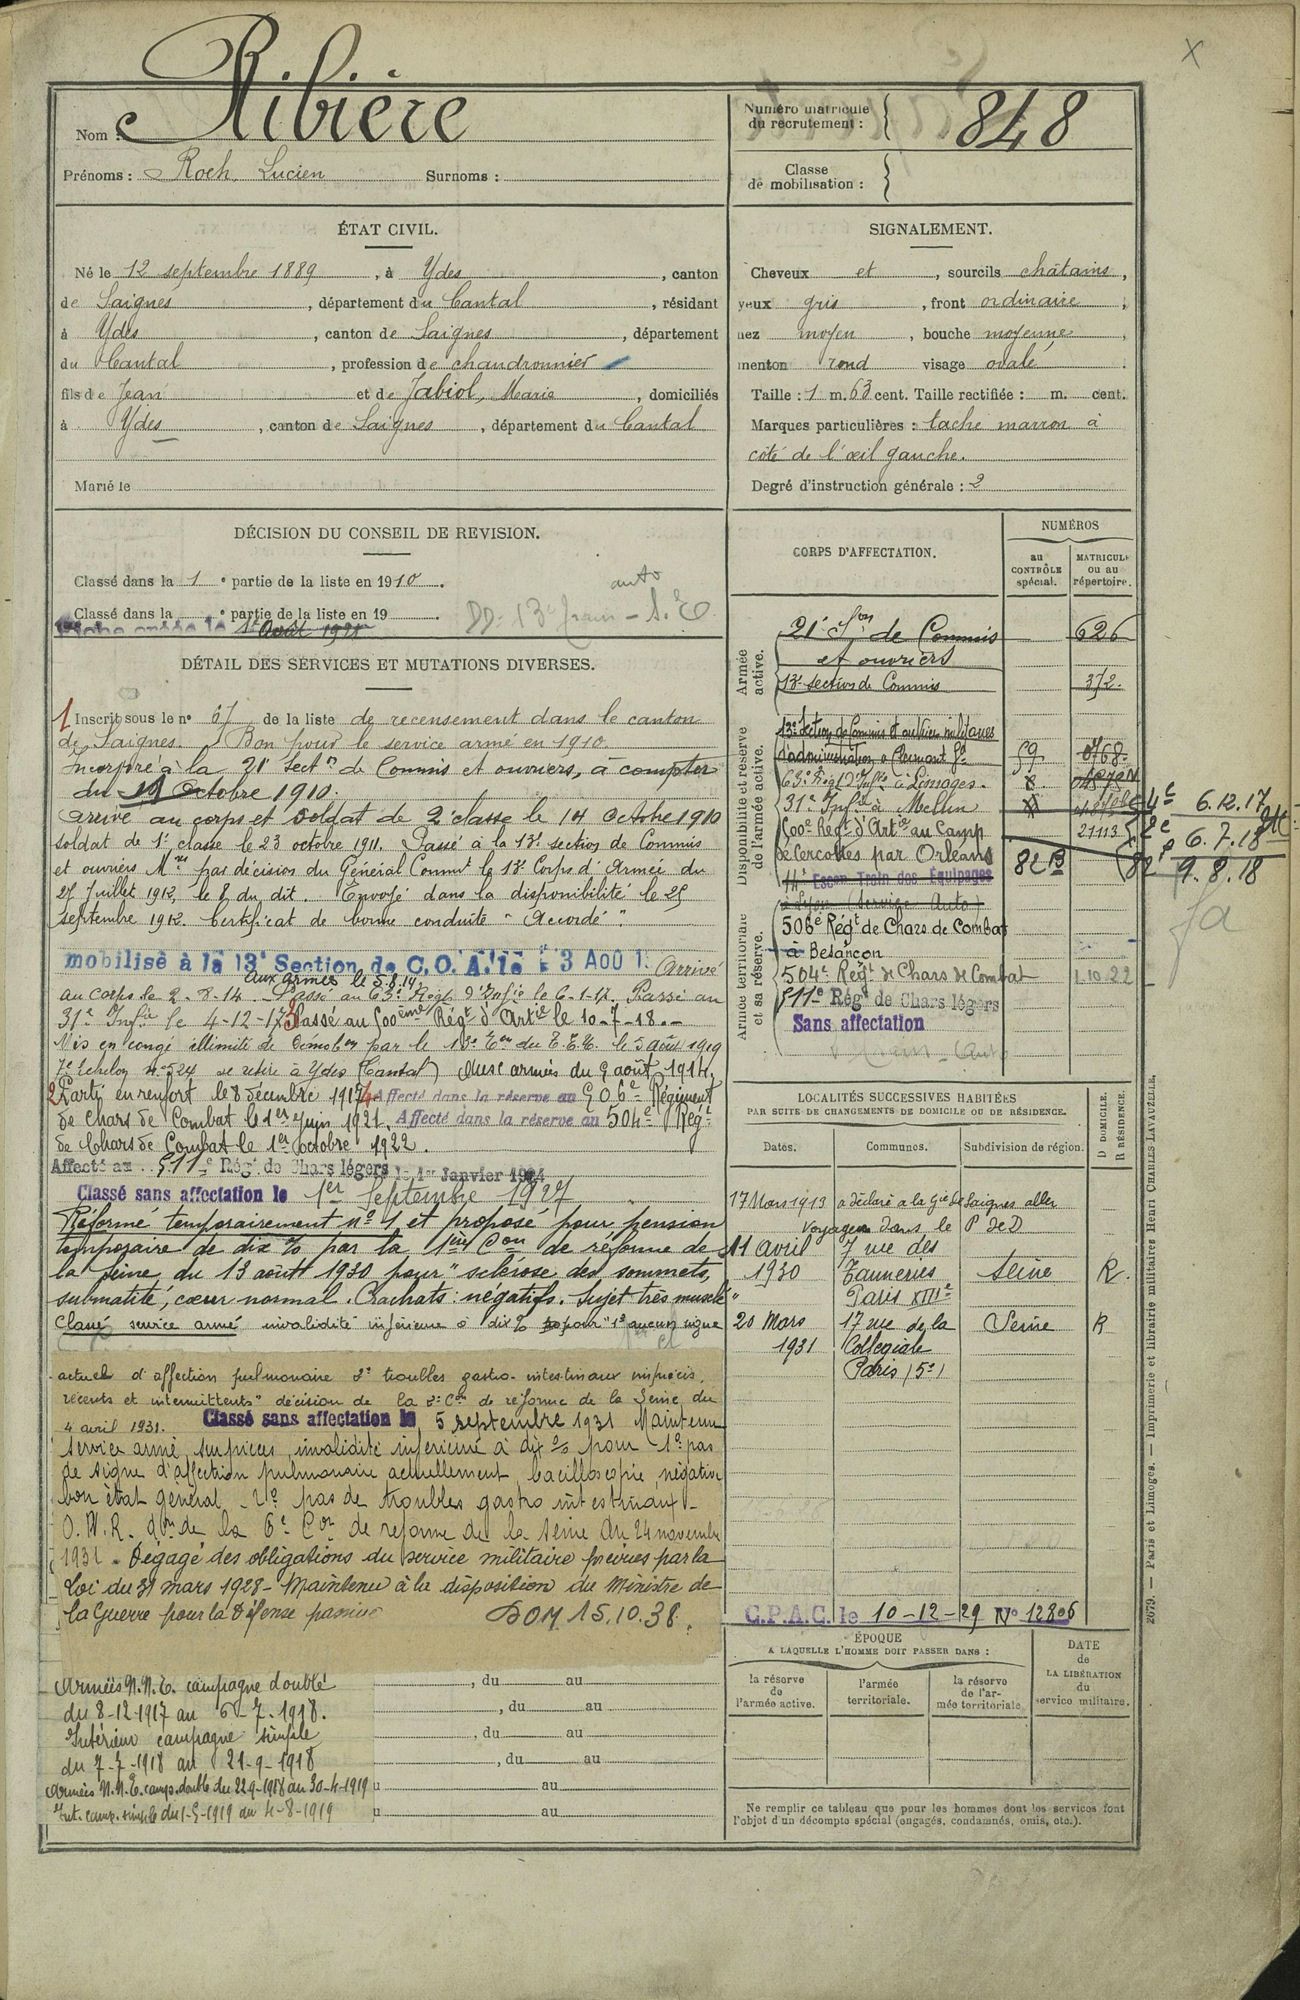 Nom : Ribière
Prénoms : Roch, Lucien Surnoms :
Numéro matricule du recrutement : 848
Classe de mobilisation :
ÉTAT CIVIL.
Né le 12 septembre 1889, à Ydes, canton
de Saignes, département du Cantal, résidant
à Ydes, canton de Saignes, département
du Cantal, profession de chaudronnier
fils de Jean et de Jabiol, Marie, domiciliés
à Ydes, canton de Saignes, département du Cantal
Marié le
SIGNALEMENT.
Cheveux et, sourcils châtains,
yeux gris, front ordinaire,
nez moyen, bouche moyenne,
menton rond visage ovale.
Taille : 1 m. 63 cent. Taille rectifiée : m. cent.
Marques particulières : tache marron à
côté de l'œil gauche.
Degré d'instruction générale : 2
DÉCISION DU CONSEIL DE REVISION.
Classé dans la 1e partie de la liste en 1910.
Classé dans la e partie de la liste en 19
1er Août 1921
auto
DÉTAIL DES SERVICES ET MUTATIONS DIVERSES.
1 Inscrit sous le n° 67 de la liste de recensement dans le canton
de Saignes. Bon pour le service armé en 1910.
Incorporé à la 21e Sectn de Commis et ouvriers, à compter
du Octobre 1910.
arrivé au corps et soldat de 2e classe le 14 Octobre 1910
soldat de 1e classe le 23 octobre 1911. Passé à la 13e section de Commis
et ouvriers Mres par décision du Général Commt le 13e Corps d'Armée du
27 Juillet 1912, le 8 du dit. Envoyé dans la disponibilité le 25
septembre 1912. Certificat de bonne conduite "Accordé".
mobilisé à la 13e Section de C.O.A. le 3 Aoû 1 Arrivé
aux armées le 5.8.14
au corps le 2-8-14 Passé au 63e Régt d'Infie le 6-1-17. Passé au
31e Infie le 4-12-17 3 Passé au 500ème Régt d'Artie le 10-7-18.-
Mis en congé illimité de Démobon par le 13e Eon du T.E.M. le 5 août 1919
7e Echelon n° 524 se retire à Ydes (Cantal) aux armées du 9 août 1914.
2 Parti en renfort le 8 décembre 1917 4 Affecté dans la réserve au 506e Régiment
de Chars de Combat le 1er Juin 1921. Affecté dans la réserve au 504e Régt
de Chars de Combat le 1er octobre 1922.
Affecté au 511e Régt de Chars légers le 1er Janvier 1924
Classé sans affectation le 1er Septembre 1927
Réformé temporairement n° 1 et proposé pour pension
temporaire de dix % par la 1ère Con de réforme de
la Seine du 13 août 1930 pour "sclérose des sommets,
submatité, cœur normal. Crachats négatifs. Sujet très musclé"
Classé service armé invalidité inférieure à dix % pour "1° aucun signe
actuel d'affection pulmonaire 2° troubles gastro-intestinaux imprécis,
récents et intermittents" décision de la 2e Con de réforme de la Seine du
4 avril 1931. Classé sans affectation le 5 septembre 1931 Maintenu
service armé, sur pièces, invalidité inférieure à dix % pour 1° pas
de signe d'affection pulmonaire actuellement, bacilloscopie négative
bon état général - 2° pas de troubles gastro intestinaux -
O.N.R. don de la 6e Con de réforme de la Seine du 24 novembre
1931. Dégagé des obligations du service militaire prévues par la
Loi du 31 mars 1928 - Maintenu à la disposition du Ministre de
la Guerre pour la Défense passive DOM 15.10.38.
Armées N.N.E. campagne double
du 8-12-1917 au 6-7-1918.
Intérieur campagne simple
du 7-7-1918 au 21-9-1918
Armées N.N.E. camp. double du 22-9-1918 au 30-4-1919
Int. camp. simple du 1-5-1919 au 4-8-1919
, du au
, du au
, du au
, du au
u au
u au
CORPS D'AFFECTATION.
NUMÉROS
au CONTRÔLE spécial.
MATRICULE ou au répertoire.
Armée active.
21e Son de Commis 626
et ouvriers
13e section de Commis 372.
Disponibilité et réserve de l'armée active.
13e Section de Commis et ouvriers militaires
d'administration à Clermont Fd 59
63e Régt d'Infie à Limoges.
31e Infie à Melun
500e Régt d'Artie au Camp 21113
de Cercottes par Orléans
14e Escon Train des Équipages
à Lyon (Service Auto)
Armée territoriale et sa réserve.
506e Régt de Chars de Combat
à Besançon
504e Régt de Chars de Combat 1.10.22
511e Régt de Chars légers
Sans affectation
4e 6.12.17
6.7.18
9.8.18
LOCALITÉS SUCCESSIVES HABITÉES
PAR SUITE DE CHANGEMENTS DE DOMICILE OU DE RÉSIDENCE.
Dates. Communes. Subdivision de région. D DOMICILE. R RÉSIDENCE.
17 Mars 1913 a déclaré à la Gie de Saignes aller
voyager dans le P de D
11 avril 1930 7 rue des Tanneries Paris XIIIe Seine R.
20 Mars 1931 17 rue de la Collégiale Paris (5e) Seine R
C.P.A.C. le 10-12-29 N° 12806
ÉPOQUE
A LAQUELLE L'HOMME DOIT PASSER DANS :
la réserve de l'armée active.
l'armée territoriale.
la réserve de l'armée territoriale
DATE de LA LIBÉRATION du service militaire.
Ne remplir ce tableau que pour les hommes dont les services font
l'objet d'un décompte spécial (engagés, condamnés, omis, etc.).
2679. — Paris et Limoges. — Imprimerie et librairie militaires Henri CHARLES-LAVAUZELLE.